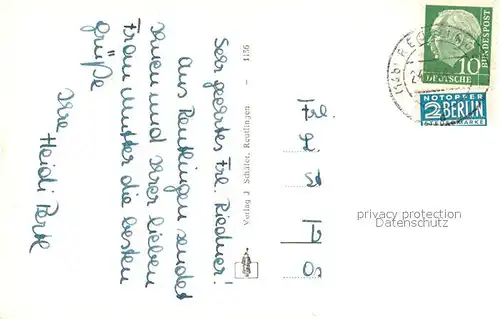 Sehr geehrtes Frl. Riedner!
Aus Reutlingen sendet
Ihnen und Ihrer lieben
Frau Mutter die besten
Grüße
Ihre
Heidi
Verlag J. Schäfer, Reutlingen - 1156
Frl.
L.
St
T
Os
10
DEUTSCHE
BUNDESPOST
NOTOPFER
2 BERLIN
STEUERMARKE
privacy protection
DANRMARK